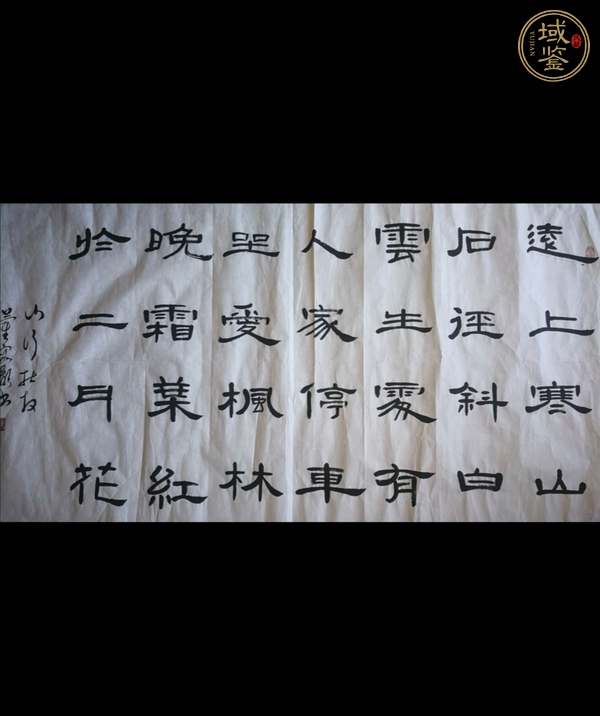 遠上寒山
石徑斜白
雲生處有
人家停車
坐愛楓林
晚霜葉紅
於二月花
山行杜牧
域鉴
YUJIAN